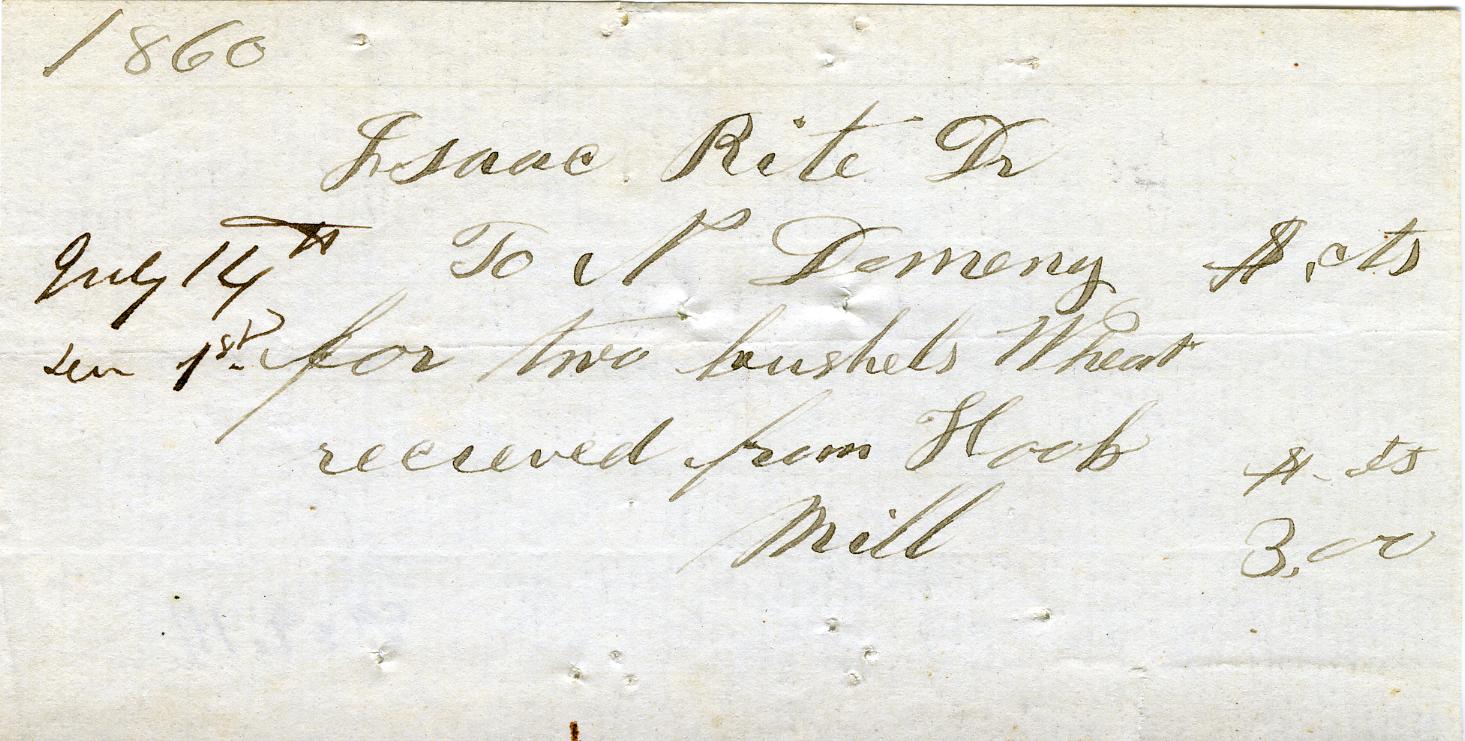 1860
Isaac Rite Dr
July 14th To N Demeny $. cts
1st for two bushels Wheat
recieved from Hook $. cts
Mill 3.00